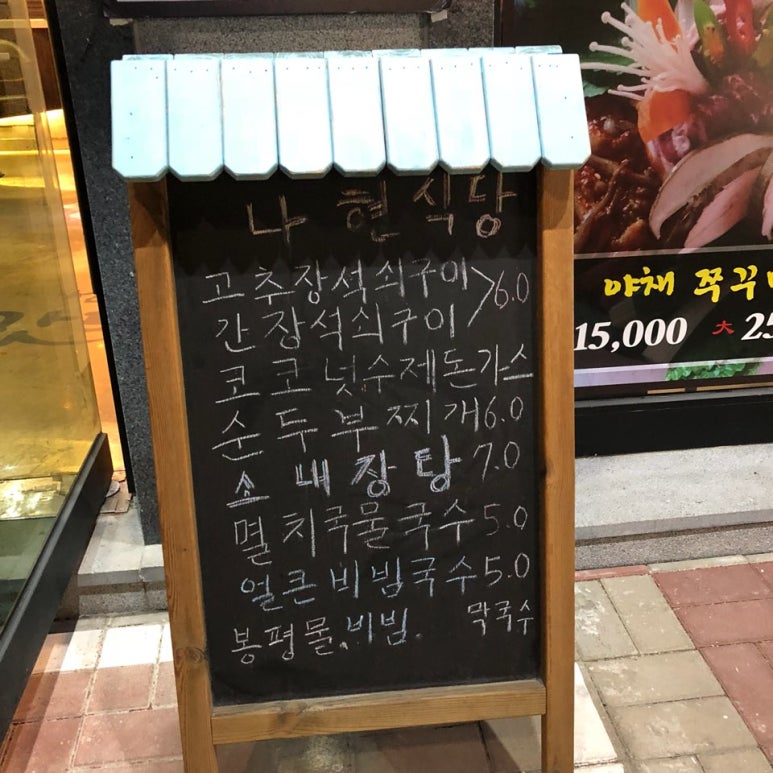 나현식당
고추장석쇠구이 > 6.0
간장석쇠구이
코코넛수제돈가스
순두부찌개 6.0
소내장탕 7.0
멸치국물국수 5.0
얼큰비빔국수 5.0
봉평물.비빔. 막국수
야채 쭈꾸
15,000 大 25